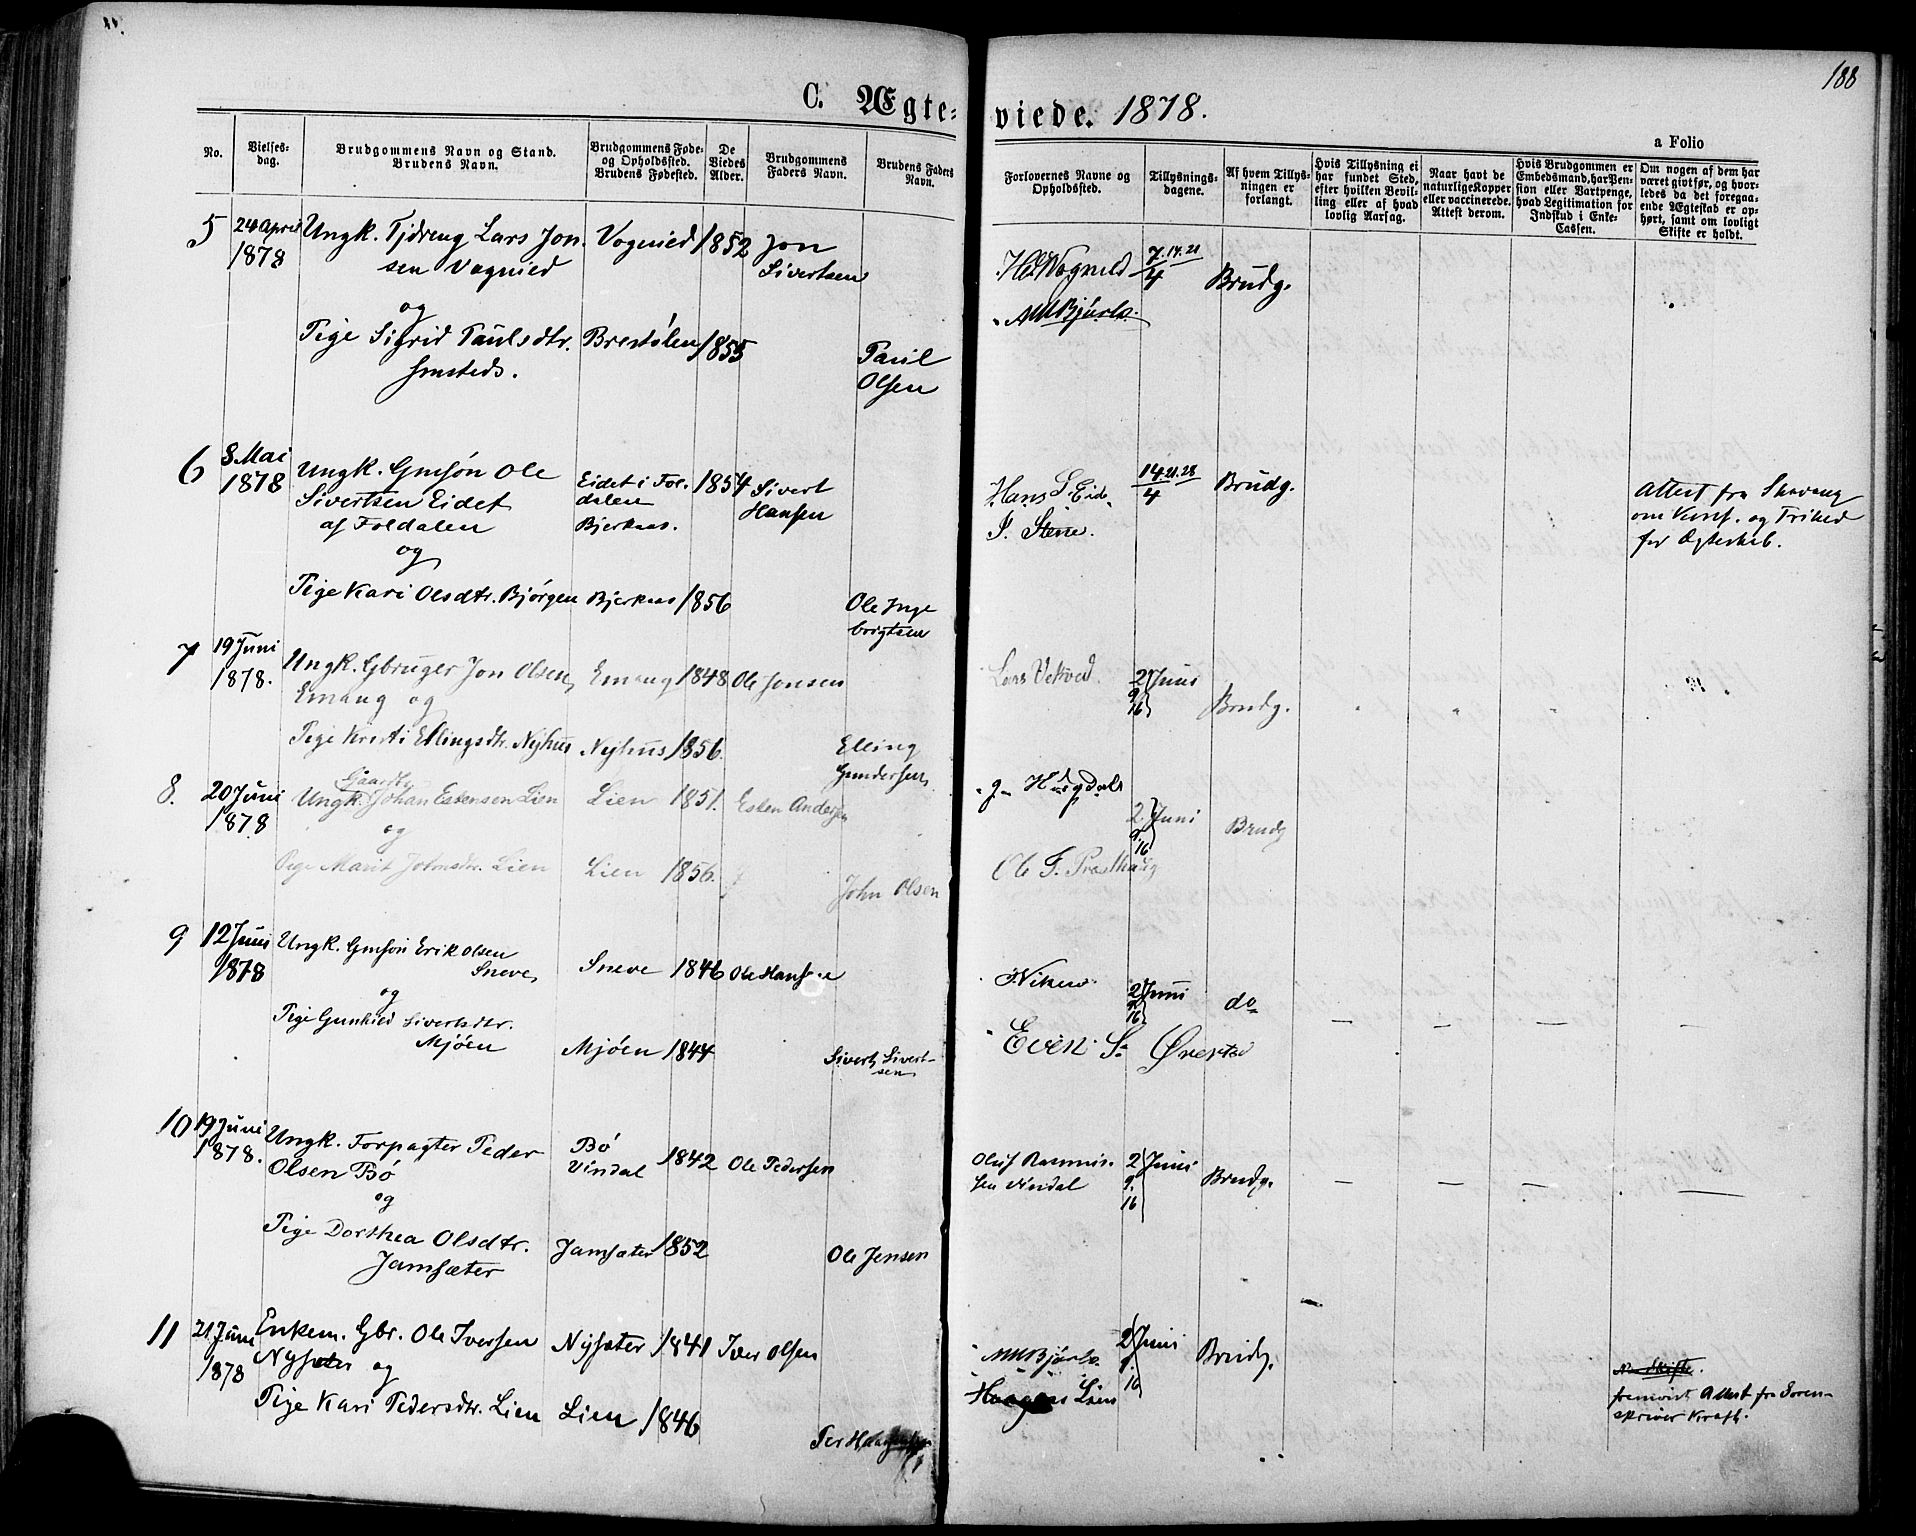 188
C. Ægte-
viede. 1878.
a Folio
No.
Vielses-
dag.
Brudgommens Navn og Stand.
Brudens Navn.
Brudgommens Føde-
og Opholdssted.
Brudens Fødested.
De
Viedes
Alder.
Brudgommens
Faders Navn.
Brudens Faders
Navn.
Forlovernes Navne og
Opholdssted.
Tillysnings-
dagene.
Af hvem Tillys-
ningen er
forlangt.
Hvis Tillysning ei
har fundet Sted,
efter hvilken Bevil-
ling eller af hvad
lovlig Aarsag.
Naar havt de
naturlige Kopper
eller vaccinerede.
Attest derom.
Hvis Brudgommen er
Embedsmand, har Pen-
sion eller Vartpenge,
hvad Legitimation for
Indskud i Enke-
Cassen.
Om nogen af dem har
været givt før, og hvor-
ledes da det foregaa-
ende Ægteskab er op-
hørt, samt om lovligt
Skifte er holdt.
5 24 April 1878 Ungk. Tjdreng Lars Jon-
sen Vognild
Vognild 1852 Jon
Sivertsen
og
Pige Sigrid Paulsdtr.
smsteds.
Brestølen 1855 Paul
Olsen
Vognild
7. 14. 21
4
Brudg.
6 8 Mai 1878 Ungk. Gmsøn Ole
Sivertsen Eidet
af Foldalen
Eidet i Fol-
dalen
Bjerkaas.
1854 Sivert
Hansen
og
Pige Kari Olsdtr. Bjørgen Bjerkaas 1856 Ole Inge
brigtsen
Hans S. Eid.
S. Stene.
14. 21. 28
4
Brudg.
Attest fra Stavang
om Konf. og Frihed
for Ægteskab.
7 19 Juni 1878. Ungk. Gbruger Jon Olsen
Emaug og
Emaug 1848 Ole Jonsen
Pige Kristi Ellingsdtr. Nyhus Nyhus 1856. Elling
Gundersen
Lars Vekved.
2 Juni
9
16
Brudg.
8. 20 Juni 1878 Gaardbr.
Ungk. Johan Estensen Lien Lien 1851. Esten Andersen
og
Pige Marit Johnsdtr. Lien Lien 1856. John Olsen
2 Juni
9
16
Brudg
Ole F. Præsthaug
9 12 Juni 1878 Ungk. Gmsøn Erik Olsen
Sneve
Sneve 1846 Ole Hansen
og
Pige Gunhild Sivertsdtr.
Mjøen
Mjøen 1844 Sivert Sivert-
sen
2 Juni
9
16
do
Even S. Ørestad
10 19 Juni 1878. Ungk. Forpagter Peder
Olsen Bø
Bø
Vindal
1842 Ole Pedersen
og
Pige Dorthea Olsdtr.
Jamsæter
Jamsæter 1852 Ole Jensen
Oluf Rasmus-
sen Vindal
2 Juni
9.
16
Brudg.
11 21 Juni 1878 Enkem. Gbr. Ole Iversen
Nysæter og
Nysæter 1841 Iver Olsen
Pige Kari Pedersdtr. Lien Lien 1846
2 Juni
9.
16
Brudg.
Lien
fremvist Attest fra Soren-
skriver Kraft.